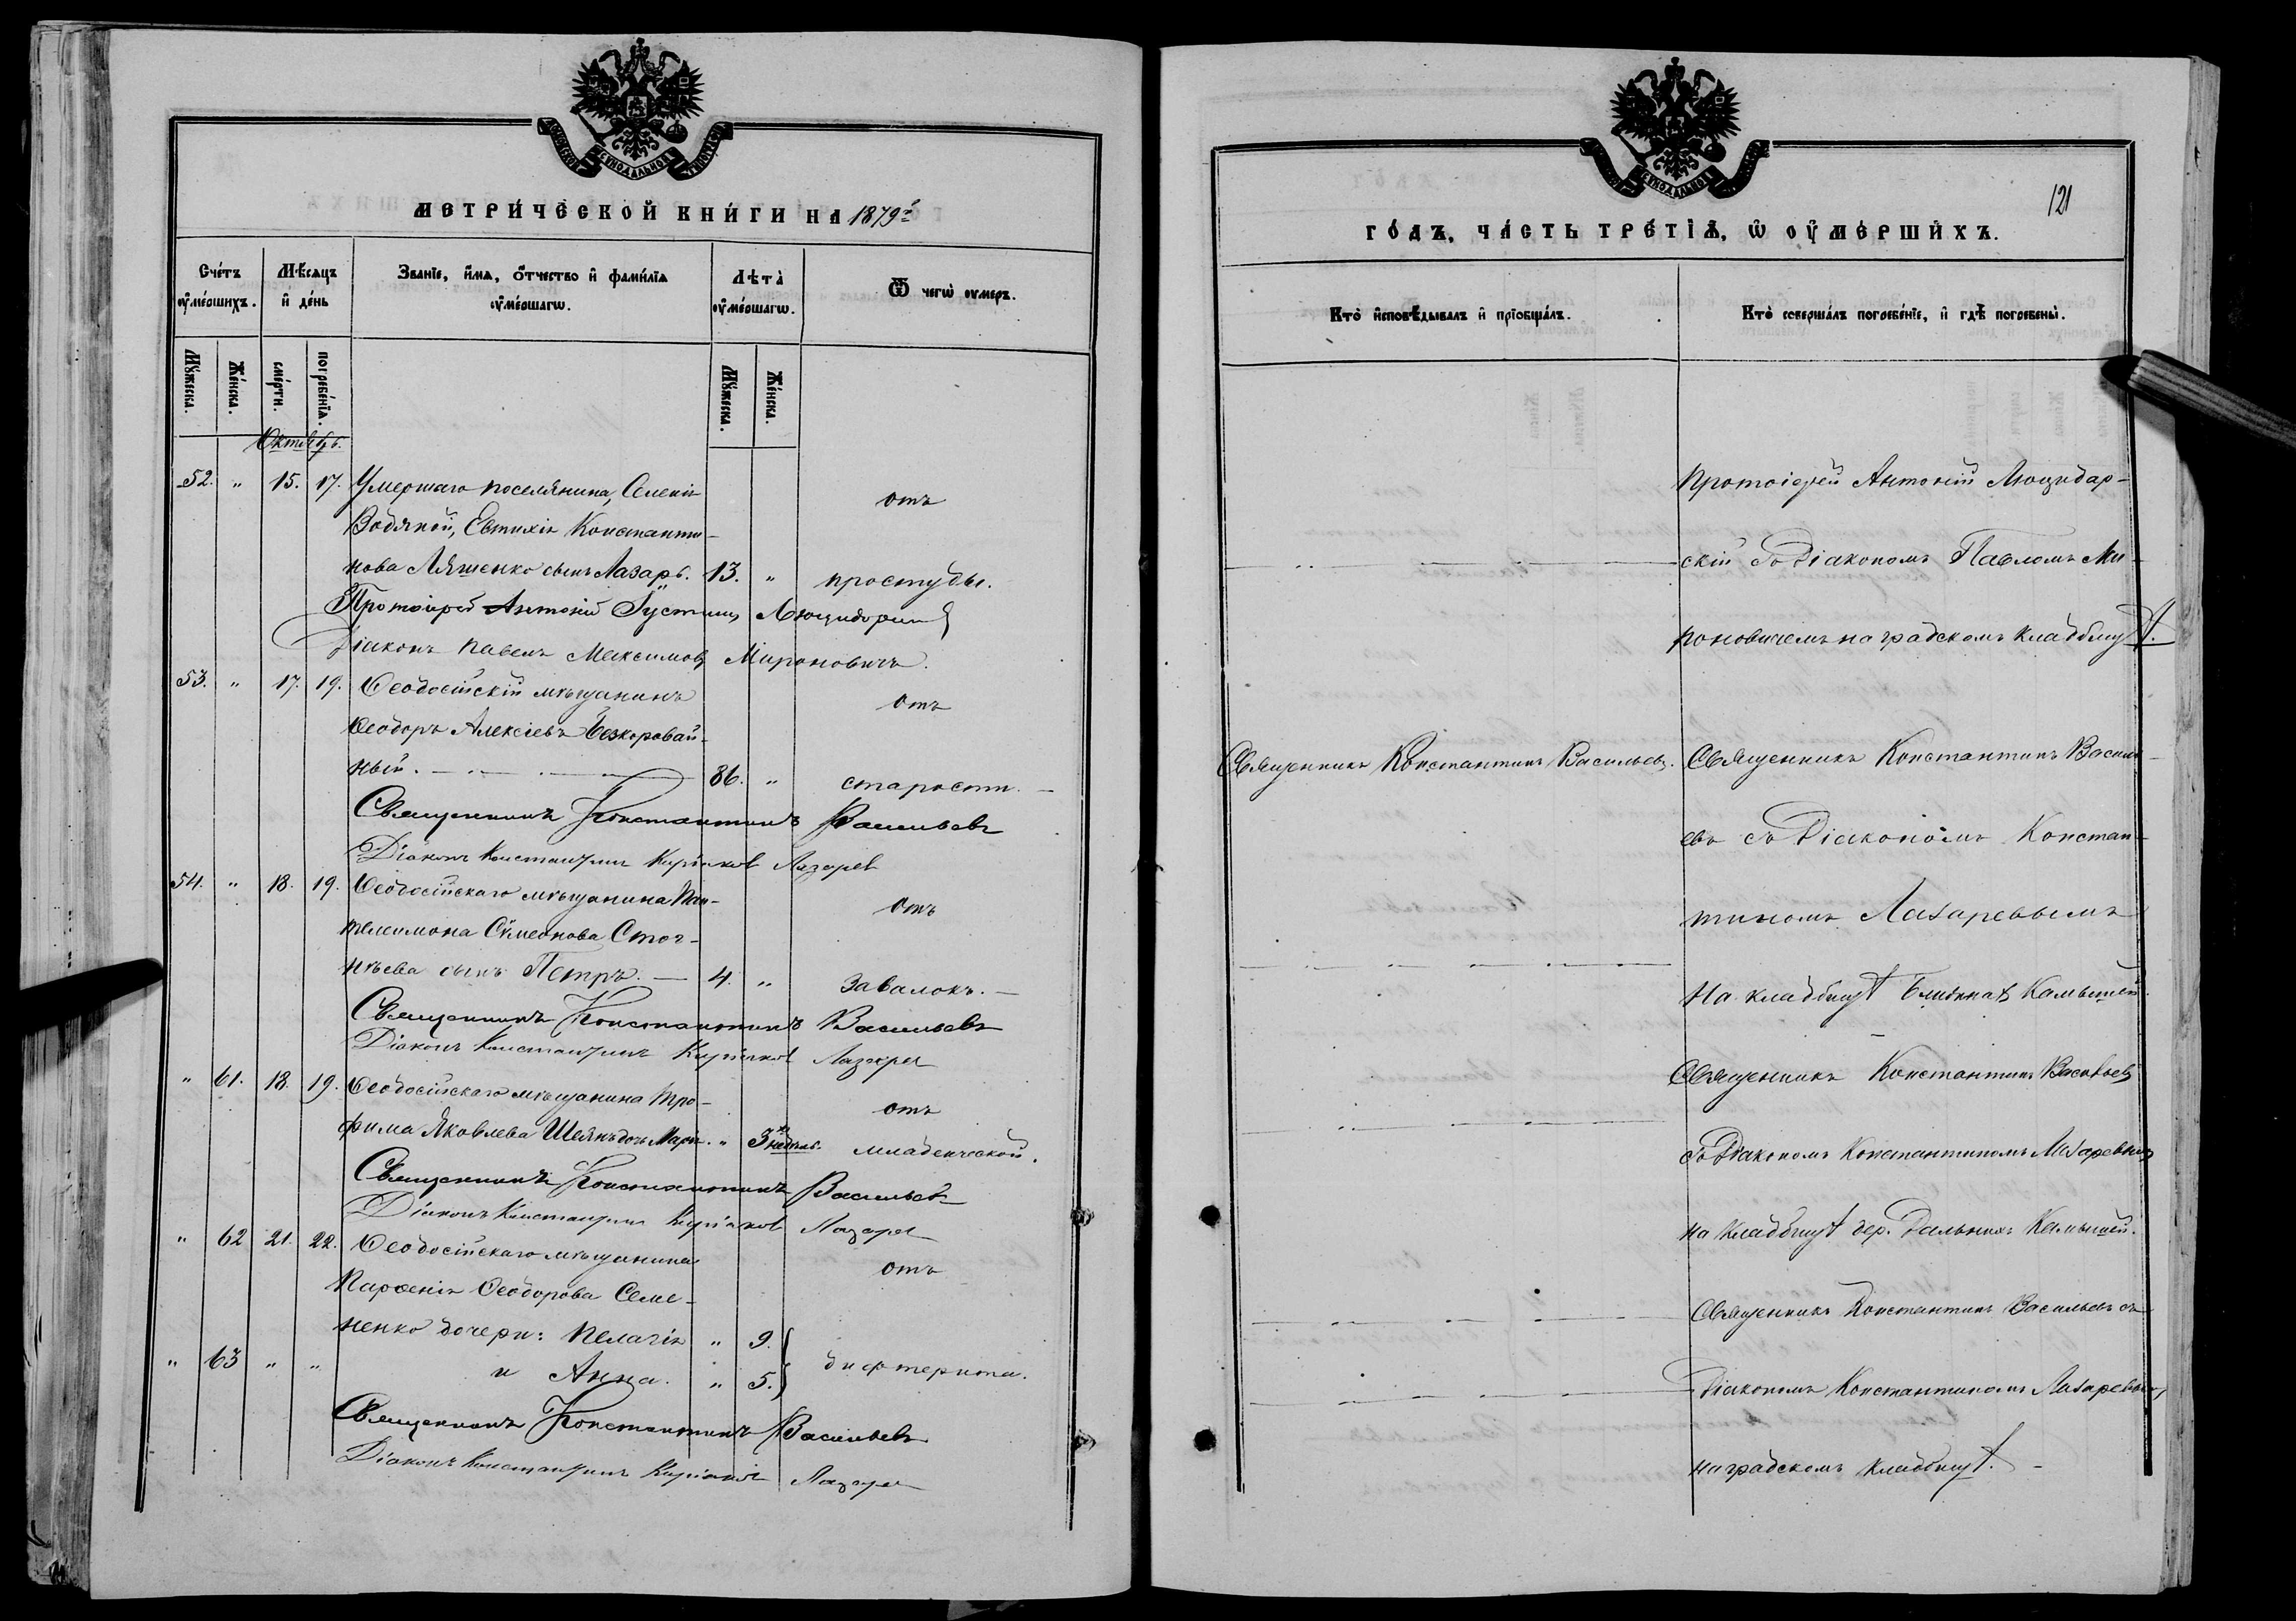 МЕТРИЧЕСКОЙ КНИГИ НА 1879й
Счетъ умершихъ.
Мѣсяцъ и день
Званіе, имя, отчество и фамилія умершагѡ.
Лѣта умершагѡ.
Ѿ чегѡ умеръ.
Мужеска.
Женска.
смерти.
погребенія.
Мужеска.
Женска.
Октябрь.
52. " 15. 17. Умершаго поселянина, Селенія
Водяной, Евтихія Константи-
отъ
нова Ляшенко сынъ Лазарь. 13. " простуды.
Протоіерей Антоній Іустинъ
Діаконъ Павелъ Максимовъ Мироновичъ.
53. " 17. 19. Ѳеодосійскій мѣщанинъ
отъ
Ѳеодоръ Алексіевъ Безкоровай-
ный. 86. " старости.
Священникъ Константинъ Васильевъ
Діаконъ Константинъ Киріаковъ Лазаревъ
54. " 18. 19. Ѳеодосійскаго мѣщанина Пан-
отъ
телеимона Сѵмеонова Стог-
нѣева сынъ Петръ. 4. " завалокъ.
Священникъ Константинъ Васильевъ
Діаконъ Константинъ Киріаковъ Лазарев
" 61. 18. 19. Ѳеодосійскаго мѣщанина Тро-
отъ
фима Яковлева дочь Марія. " 3 недѣль. младенческой.
Священникъ Константинъ Васильевъ
Діаконъ Константинъ Киріаков Лазарев
" 62 21. 22. Ѳеодосійскаго мѣщанина
отъ
Парѳенія Ѳеодорова Семе-
ненко дочери: Пелагія " 9.
" 63 " " и Анна. " 5. дифтерита.
Священникъ Константинъ Васильевъ
Діаконъ Константинъ Киріаков Лазарев
121
ГОДЪ, ЧАСТЬ ТРЕТІѦ, Ѡ ОУМЕРШИХЪ.
Кто исповѣдывалъ и пріобщалъ.
Кто совершалъ погребеніе, и гдѣ погребены.
Протоіерей Антоній Люцидар-
скій съ Діакономъ Павломъ Ми-
роновичемъ на градскомъ кладбищѣ.
Священникъ Константинъ Васильевъ. Священникъ Константинъ Василь-
евъ съ Діакономъ Констан-
тиномъ Лазаревымъ
на кладбищѣ Ближнихъ Камышей.
Священникъ Константинъ Васильевъ
съ Діакономъ Константиномъ Лазаревымъ
на кладбищѣ дер. Дальнихъ Камышей.
Священникъ Константинъ Васильевъ съ
Діакономъ Константиномъ Лазаревымъ
на градскомъ кладбищѣ.